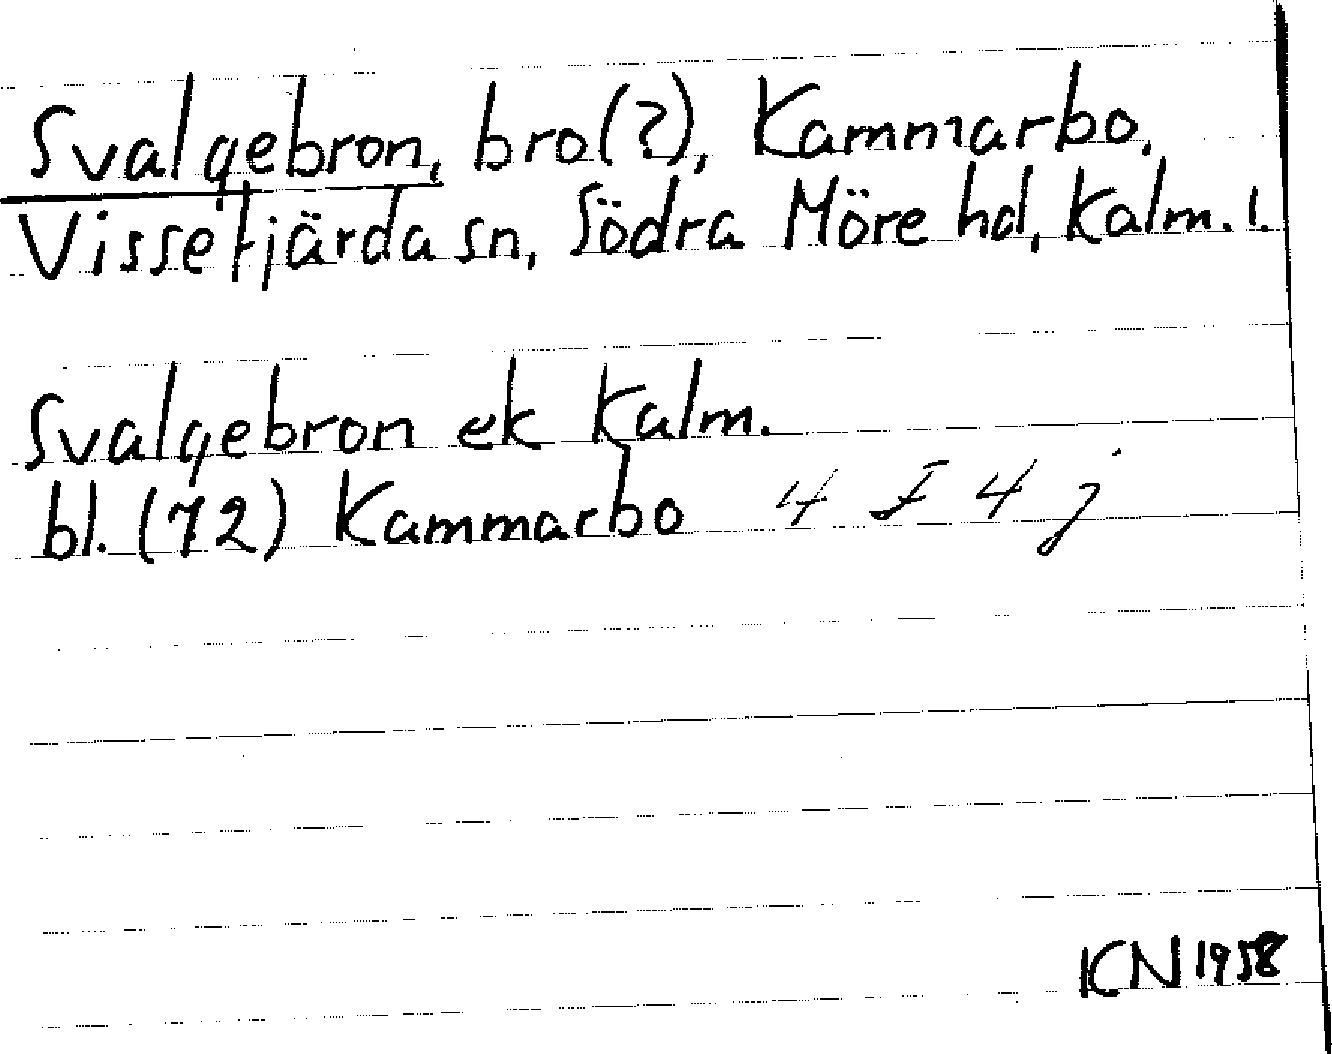 Svalgebron, bro(?), Kammarbo,
Vissefjärda sn, Södra Möre hd, Kalm. l.
Svalgebron ek Kalm.
bl. (72) Kammarbo 4 F 4 j
KN 1958